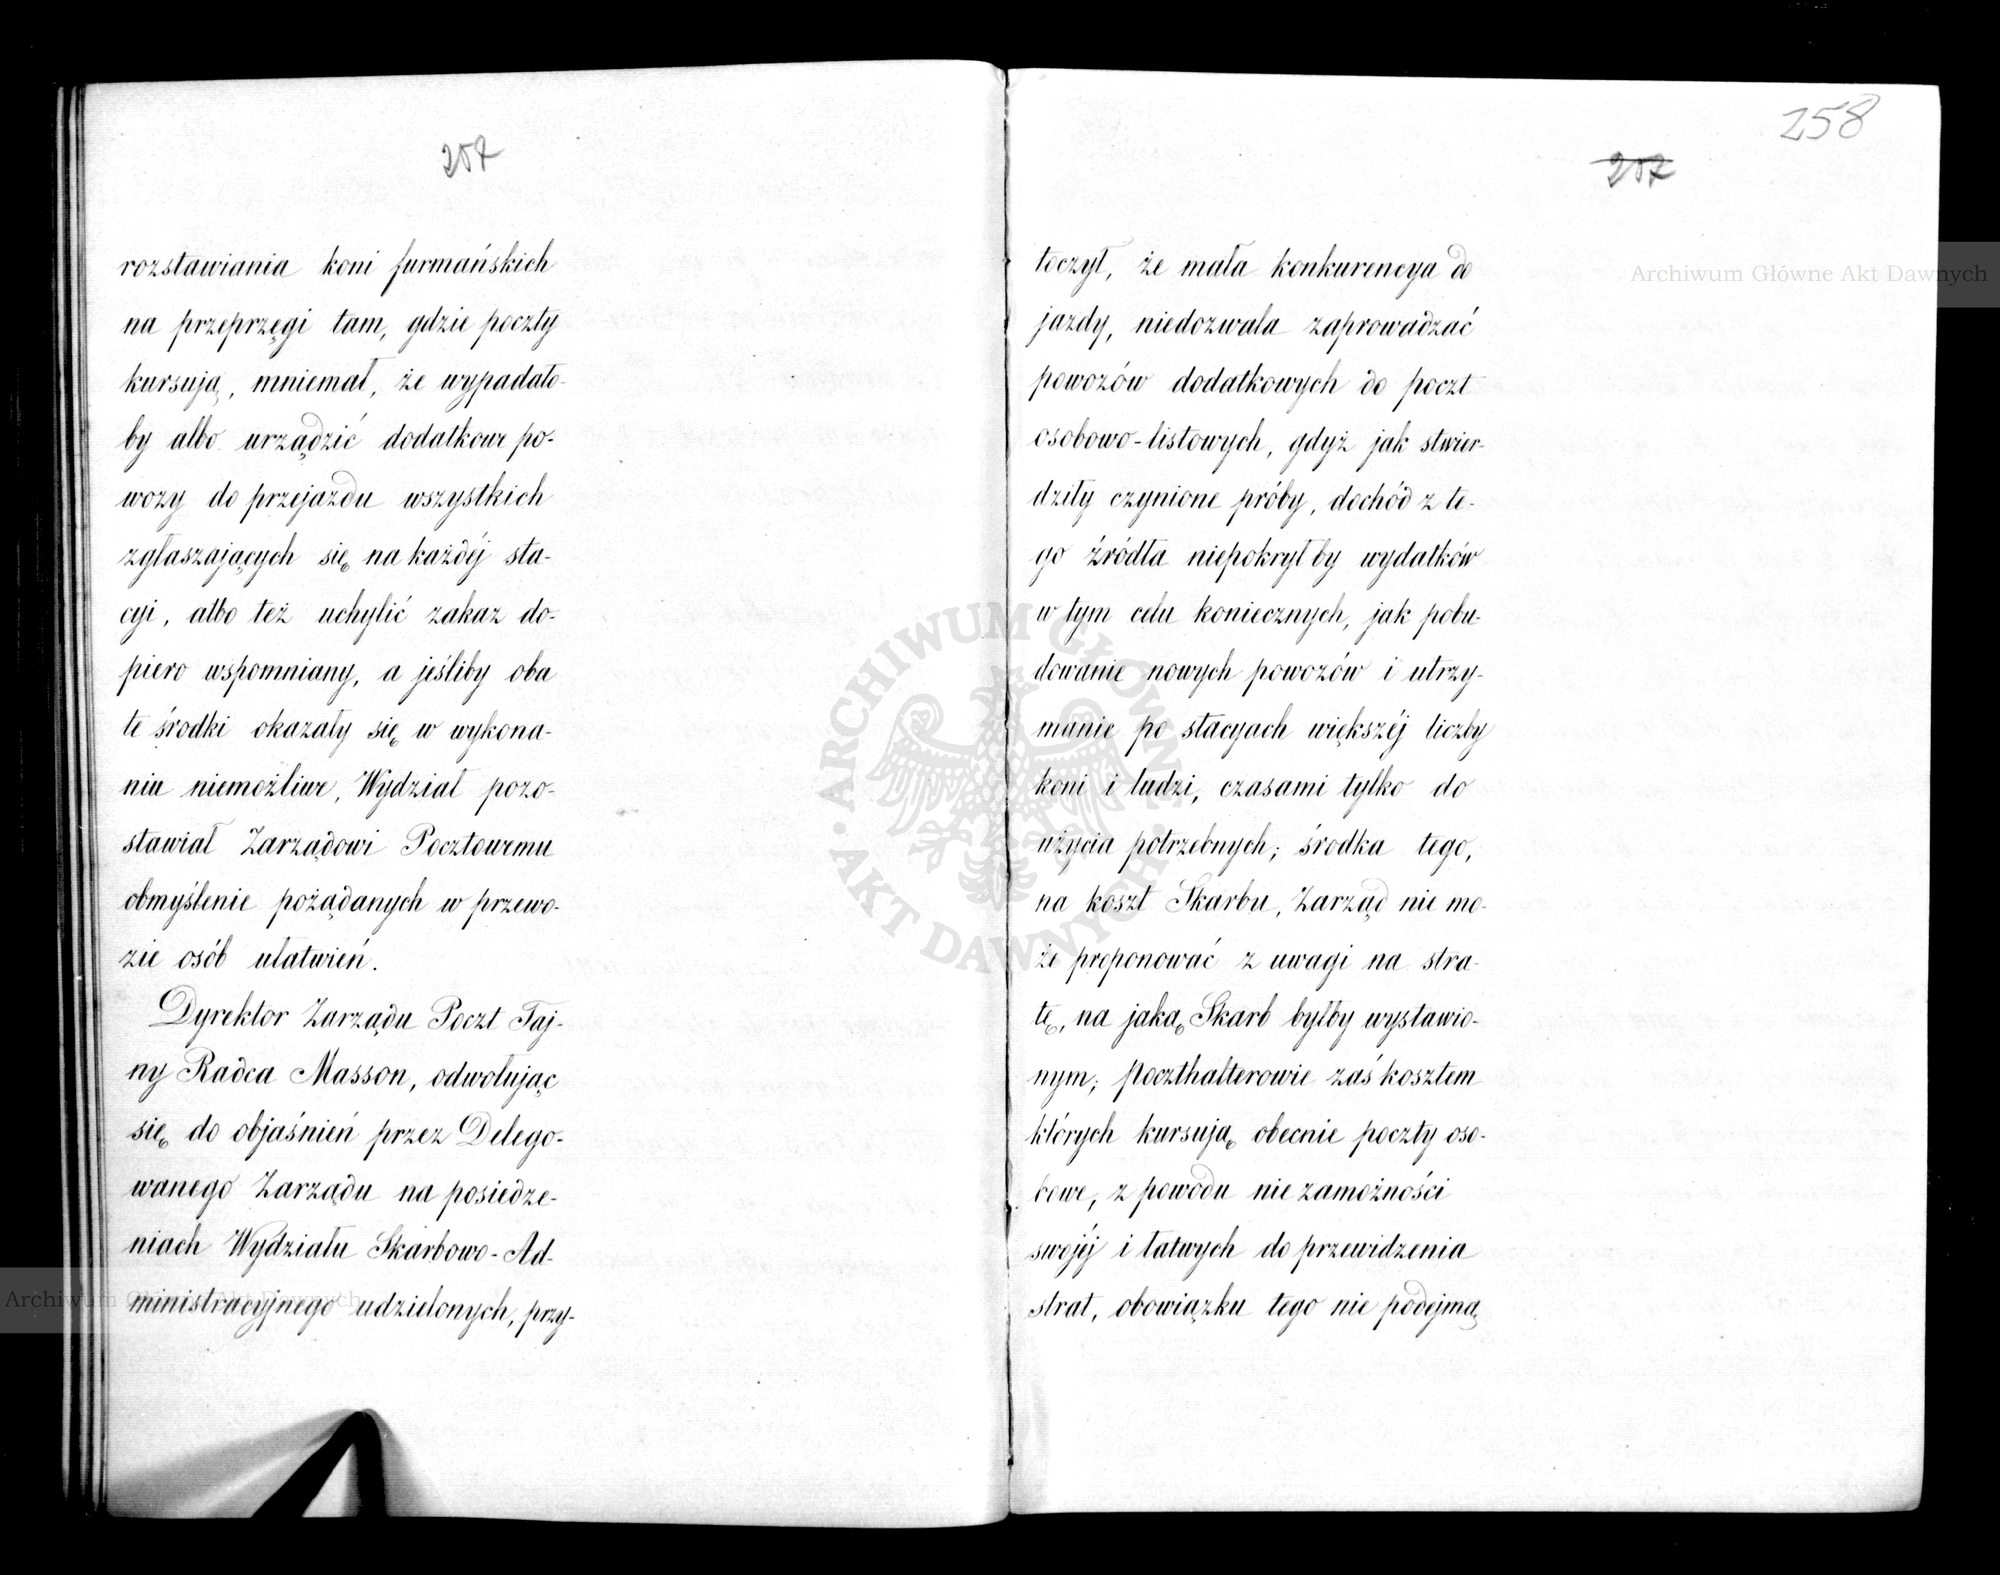 257
rozstawiania koni furmańskich
na przeprzęgi tam, gdzie poczty
kursują, mniemał, że wypadało-
by albo urządzić dodatkowe po-
wozy do przejazdu wszystkich
zgłaszających się na każdéj sta-
cyi, albo też uchylić zakaz do-
piero wspomniany, a jeśliby oba
te środki okazały się w wykona-
niu niemożliwe, Wydział pozo-
stawiał Zarządowi Pocztowemu
obmyślenie pożądanych w przewo-
zie osób ułatwień.
Dyrektor Zarządu Poczt Taj-
ny Radca Masson, odwołując
się do objaśnień przez Delego-
wanego Zarządu na posiedze-
niach Wydziału Skarbowo-Ad-
ministracyjnego udzielonych, przy-
258
257
toczył, że mała konkurencya do
jazdy, niedozwala zaprowadzać
powozów dodatkowych do poczt
osobowo-listowych, gdyż jak stwier-
dziły czynione próby, dochód z te-
go źródła niepokrył by wydatków
w tym celu koniecznych, jak pobu-
dowanie nowych powozów i utrzy-
manie po stacyach większéj liczby
koni i ludzi, czasami tylko do
użycia potrzebnych; środka tego,
na koszt Skarbu, Zarząd nie mo-
że proponować z uwagi na stra-
tę, na jaką Skarb byłby wystawio-
nym; poczthalterowie zaś kosztem
których kursują obecnie poczty oso-
bowe, z powodu nie zamożności
swojéj i łatwych do przewidzenia
strat, obowiązku tego nie podejmą
Archiwum Główne Akt Dawnych
ARCHIWUM GŁÓWNE AKT DAWNYCH
Archiwum Główne Akt Dawnych